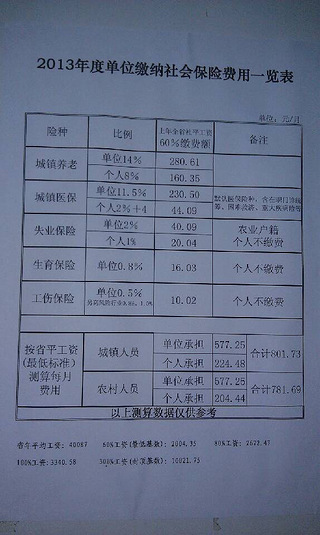 2013年度单位缴纳社会保险费用一览表
单位：元/月
险种 比例 上年全省社平工资60%缴费额 备注
城镇养老 单位14% 280.61
个人8% 160.35
城镇医保 单位11.5% 230.50
个人2%+4 44.09
失业保险 单位2% 40.09 农业户籍
个人1% 20.04 个人不缴费
生育保险 单位0.8% 16.03 个人不缴费
工伤保险 单位0.5% 10.02 个人不缴费
按省平工资(最低标准)测算每月费用 城镇人员 单位承担 577.25 合计801.73
个人承担 224.48
农村人员 单位承担 577.25 合计781.69
个人承担 204.44
以上测算数据仅供参考
省年平均工资：40087 60%工资(最低基数)：2004.35 80%工资：2672.47
100%工资：3340.58 300%工资(封顶基数)：10021.75